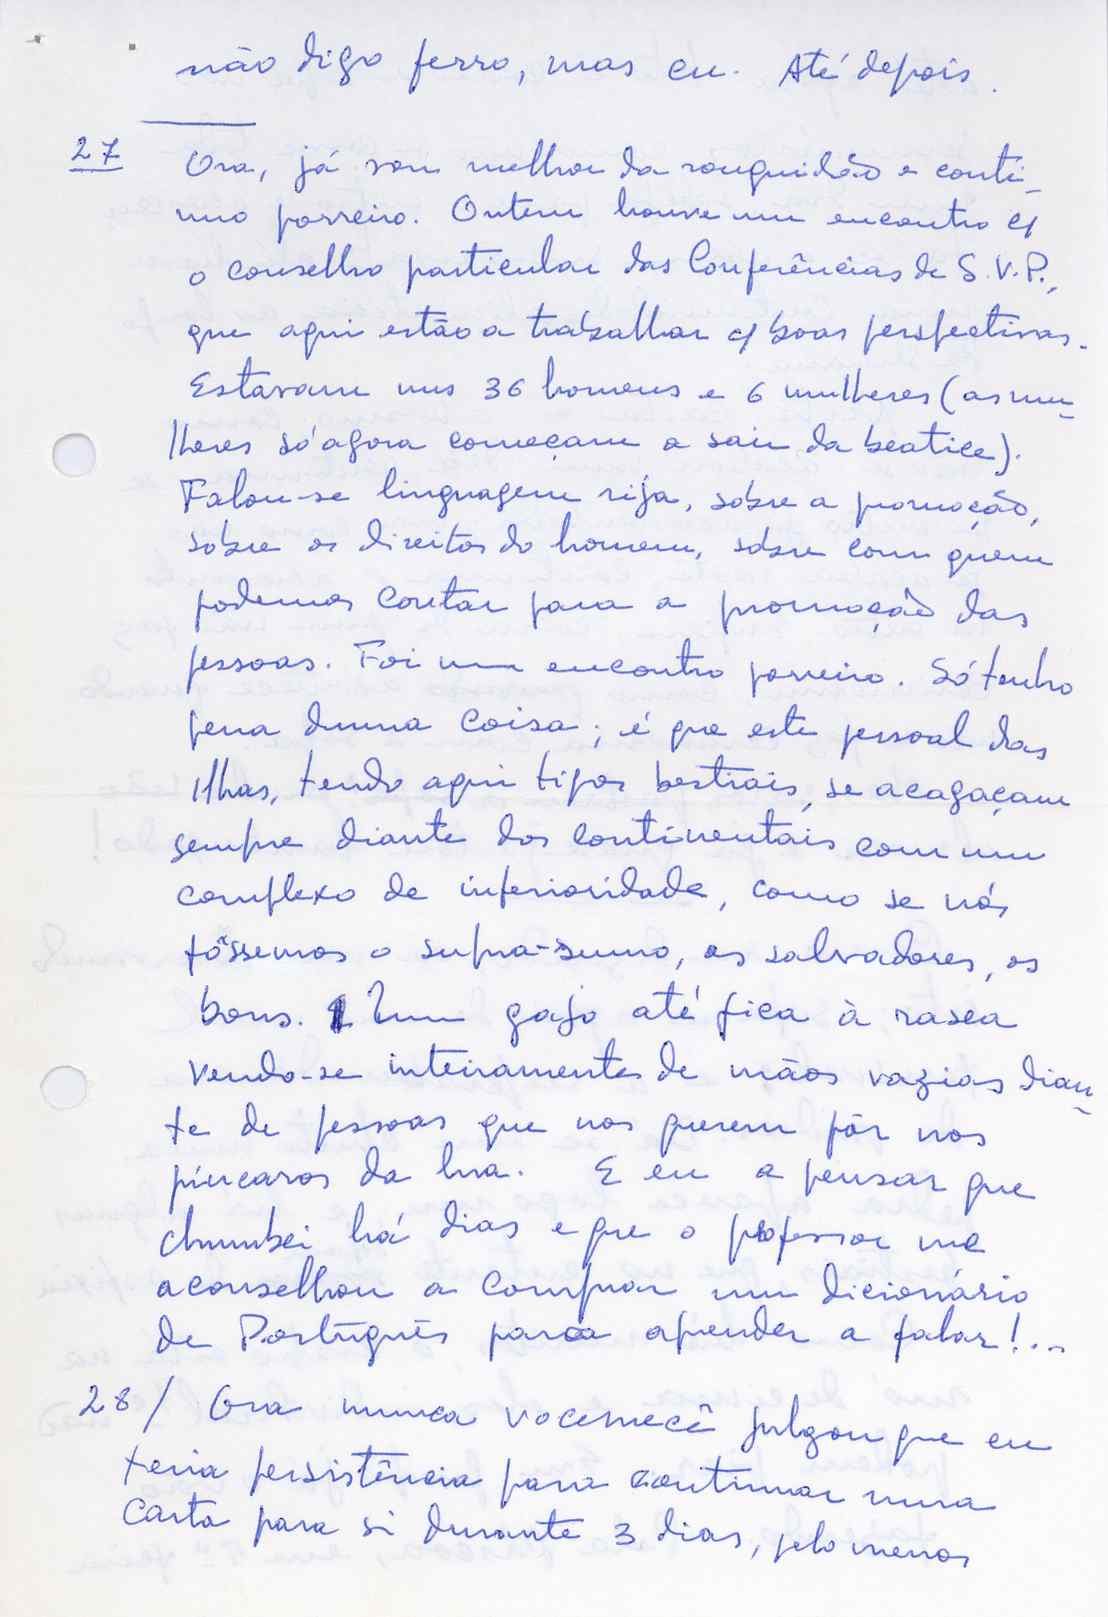 não digo ferro, mas eu. Até depois.
27 Ora, já vou melhor da rouquidão e conti-
nuo porreiro. Ontem houve um encontro c/
o conselho particular das Conferências de S.V.P.,
que aqui estão a trabalhar c/ boas perspectivas.
Estavam uns 36 homens e 6 mulheres (as mu-
lheres só agora começam a sair da beatice).
Falou-se linguagem rija, sobre a promoção,
sobre os direitos do homem, sobre com quem
podemos contar para a promoção das
pessoas. Foi um encontro porreiro. Só tenho
pena duma coisa; é que este pessoal das
Ilhas, tendo aqui tipos bestiais, se acagaçam
sempre diante dos continentais com um
complexo de inferioridade, como se nós
fôssemos o supra-sumo, os salvadores, os
bons. Um gajo até fica à rasca
vendo-se inteiramente de mãos vazias dian-
te de pessoas que nos querem pôr nos
píncaros da lua. E eu a pensar que
chumbei há dias e que o professor me
aconselhou a comprar um dicionário
de Português para aprender a falar!...
28/ Ora nunca vocemecê julgou que eu
teria persistência para continuar numa
carta para si durante 3 dias, pelo menos